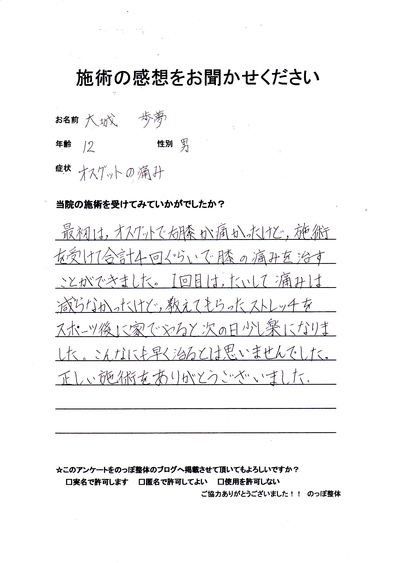 施術の感想をお聞かせください
お名前 大城 歩夢
年齢 12 性別 男
症状 オスグットの痛み
当院の施術を受けてみていかがでしたか？
最初は，オスグットで右膝が痛かったけど，施術
を受けて合計4回ぐらいで膝の痛みを治す
ことができました。1回目は，たいして痛みは
減らなかったけど，教えてもらったストレッチを
スポーツ後に家でやると次の日少し楽になりま
した。こんなにも早く治るとは思いませんでした。
正しい施術をありがとうございました．
☆このアンケートをのっぽ整体のブログへ掲載させて頂いてもよろしいですか？
□実名で許可します □匿名で許可してよい □使用を許可しない
ご協力ありがとうございました！！ のっぽ整体